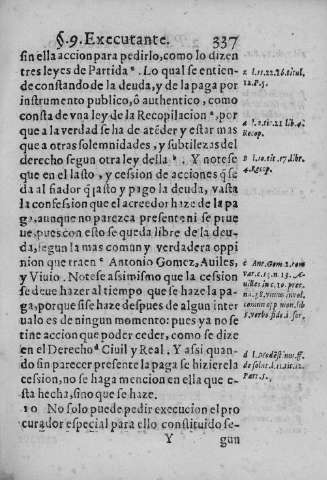 §.9. Executante. 337
sin ella accion para pedirlo, como lo dizen
tres leyes de Partida z. Lo qual se entien-
de constando de la deuda, y de la paga por
instrumento publico, ô authentico, como
consta de vna ley de la Recopilacion a, por
que a la verdad se ha de atēder y estar mas
que a otras solemnidades, y subtilezas del
derecho segun otra ley della B. Y notese
que en el lasto, y cession de acciones q̃ se
da al fiador q̃ lasto y pago la deuda, vasta
la confession que el acreedor haze de la pa
ga, aunque no parezca present eni se prue
ue, pues con esto se queda libre de la deu-
da, segun la mas comun y verdadera oppi
nion que traen c Antonio Gomez, Auiles,
y Viuio. Notese assimismo que la cession
se deue hazer al tiempo que se haze la pa-
ga, porque si se haze despues de algun inter
ualo es de ningun momento: pues ya no se
tine accion que poder ceder, como se dize
en el Derecho d Ciuil y Real. Y assi quan-
do sin parecer presente la paga se hiziere la
cession, no se haga mencion en ella que e-
sta hecha, sino que se haze.
10 No solo puede pedir execucion el pro
curador especial para ello constituido se-
Y gun
z l. 11. 22. 26. titul.
12. P. 5.
a l. 2. tit. 21 lib. 4.
Recop.
B l. 10. tit. 17. libr.
4. Recop.
c Ant. Gom. 2. tom
var. c. 13. n. 13. A-
uiles in c. 10. præt.
d l. Modest. inus ff.
de solut. l. 11. tit. 12.
Part. 5.